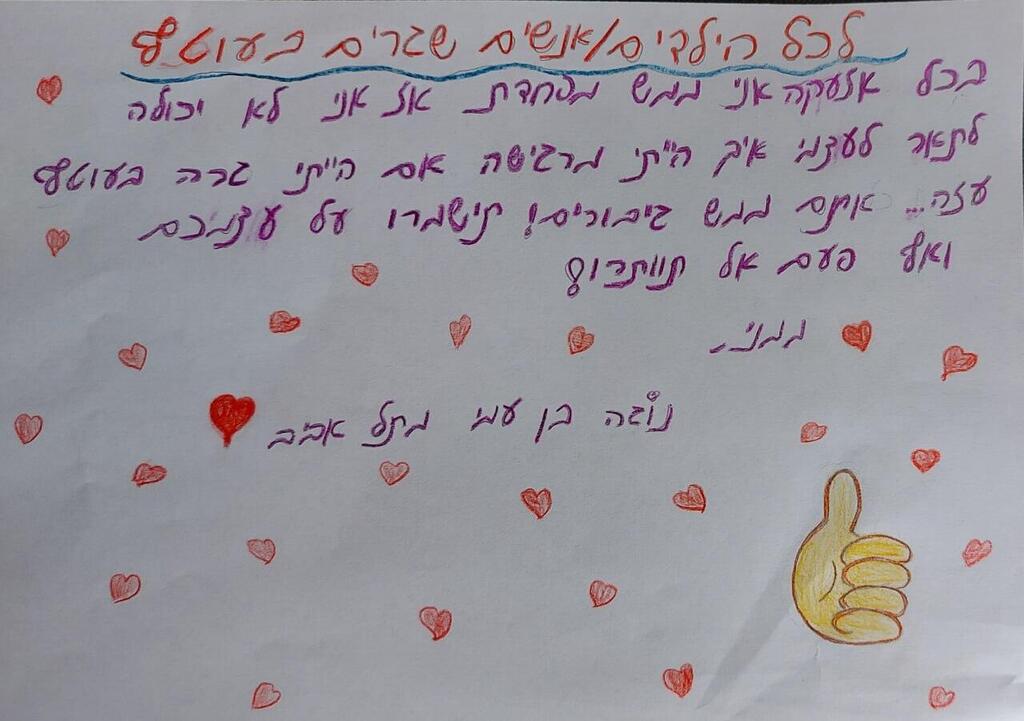 לכל הילדים/אנשים שגרים בעוטף
בכל אזעקה אני ממש מפחדת אז אני לא יכולה
לתאר לעצמי איך הייתי מרגישה אם הייתי גרה בעוטף
עזה... אתם ממש גיבורים! תישמרו על עצמכם
ואף פעם אל תוותרו!
ממני-
נוגה בן עמי מתל אביב